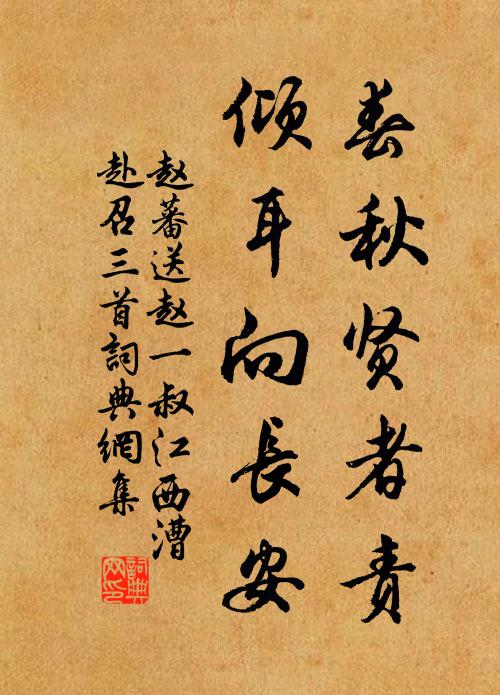 春秋贤者责
倾耳向長安
赵蕃送赵一叔江西漕
赴召三首詞典網集
詞典网印